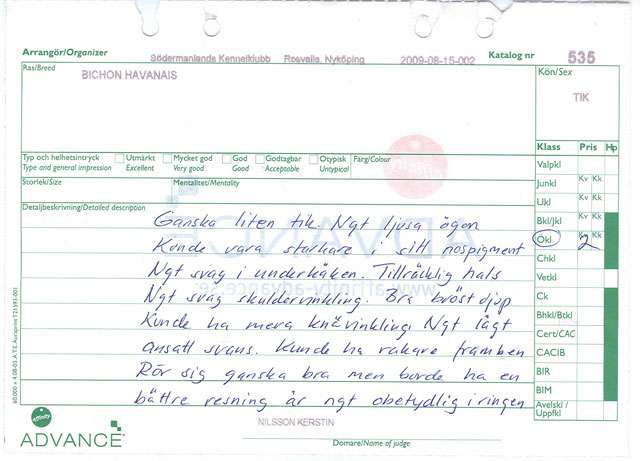 Arrangör/Organizer
Södermanlands Kennelklubb Rosvalla, Nyköping 2009-08-15-002 Katalog nr 535
Ras/Breed
BICHON HAVANAIS
Kön/Sex
TIK
Klass Pris Hp
Typ och helhetsintryck Utmärkt Mycket god God Godtagbar Otypisk Färg/Colour
Type and general impression Excellent Very good Good Acceptable Untypical
Storlek/Size Mentalitet/Mentality
Detaljbeskrivning/Detailed description
Ganska liten tik. Ngt ljusa ögon
Kunde vara starkare i sitt nospigment
Ngt svag i underkäken. Tillräcklig hals
Ngt svag skuldervinkling. Bra bröstdjup
Kunde ha mera knävinkling. Ngt lågt
ansatt svans. Kunde ha rakare framben
Rör sig ganska bra men borde ha en
bättre resning är ngt obetydlig i ringen
Valpkl
Junkl Kv Kk
Ukl Kv Kk
Bkl/Jkl
Ökl Kv Kk 2
Chkl
Vetkl
Ck
Bhkl/Btkl
Cert/CAC
CACIB
BIR
BIM
Avelskl/
Uppfkl
NILSSON KERSTIN
Domare/Name of judge
Affinity
ADVANCE
ADVANCE
www.affinity-advance.se